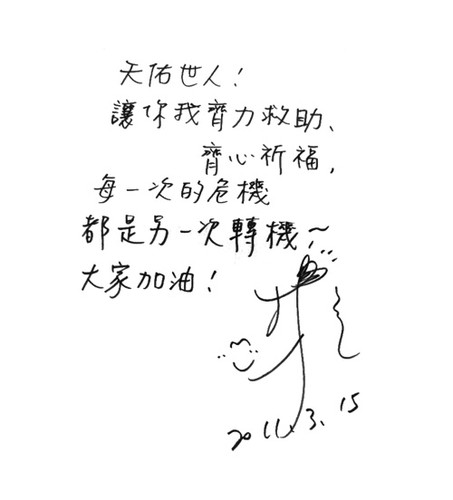 天佑世人!
讓你我齊力救助、
齊心祈福,
每一次的危機
都是另一次轉機~
大家加油!
2011.3.15